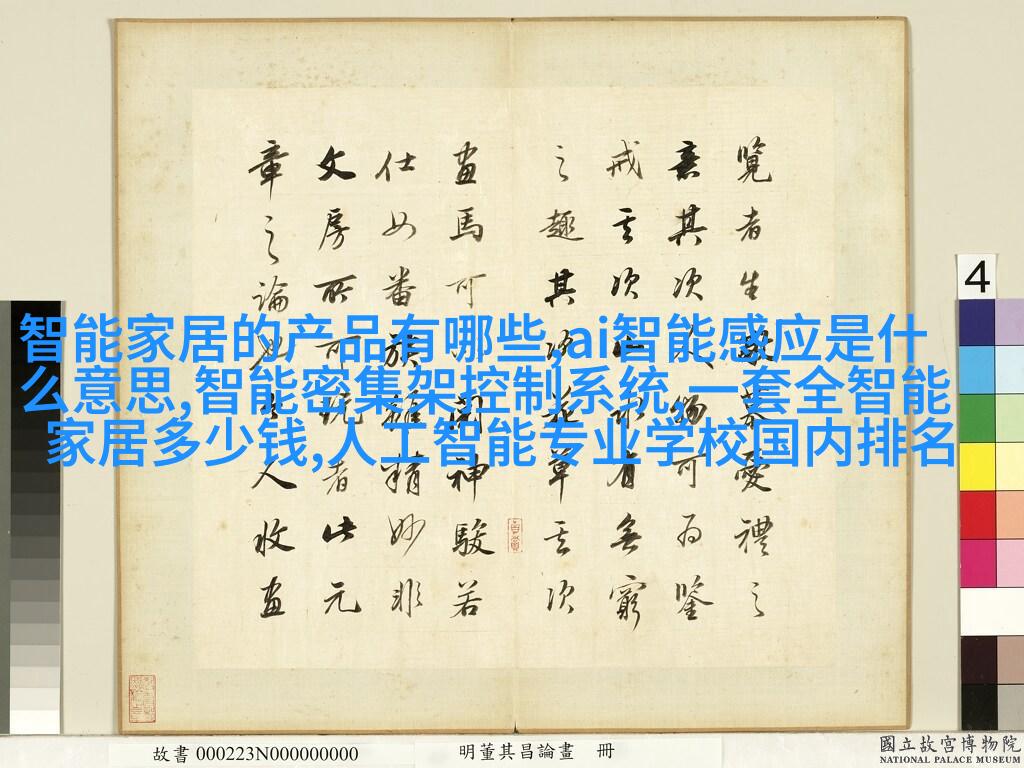 智能家居的产品有哪些,ai智能感应是什
么意思,智能密集架控制系统,一套全智能
家居多少钱,人工智能专业学校国内排名
覽者生敬慕愛禮之
意其次人物可為鑒
戒其次山水有無窮
之趣其次花草其次
畫馬可以閱神駿若
仕女番族雖精妙非
文房所可玩者此元
章之論也人收畫
4
故書 000223N000000000
明董其昌論畫 冊
國立故宮博物院
NATIONAL PALACE MUSEUM